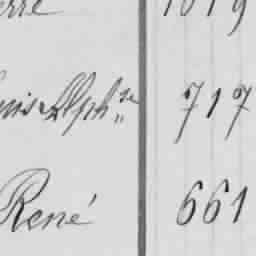 erre 1019
Alph.ne 717
René 661